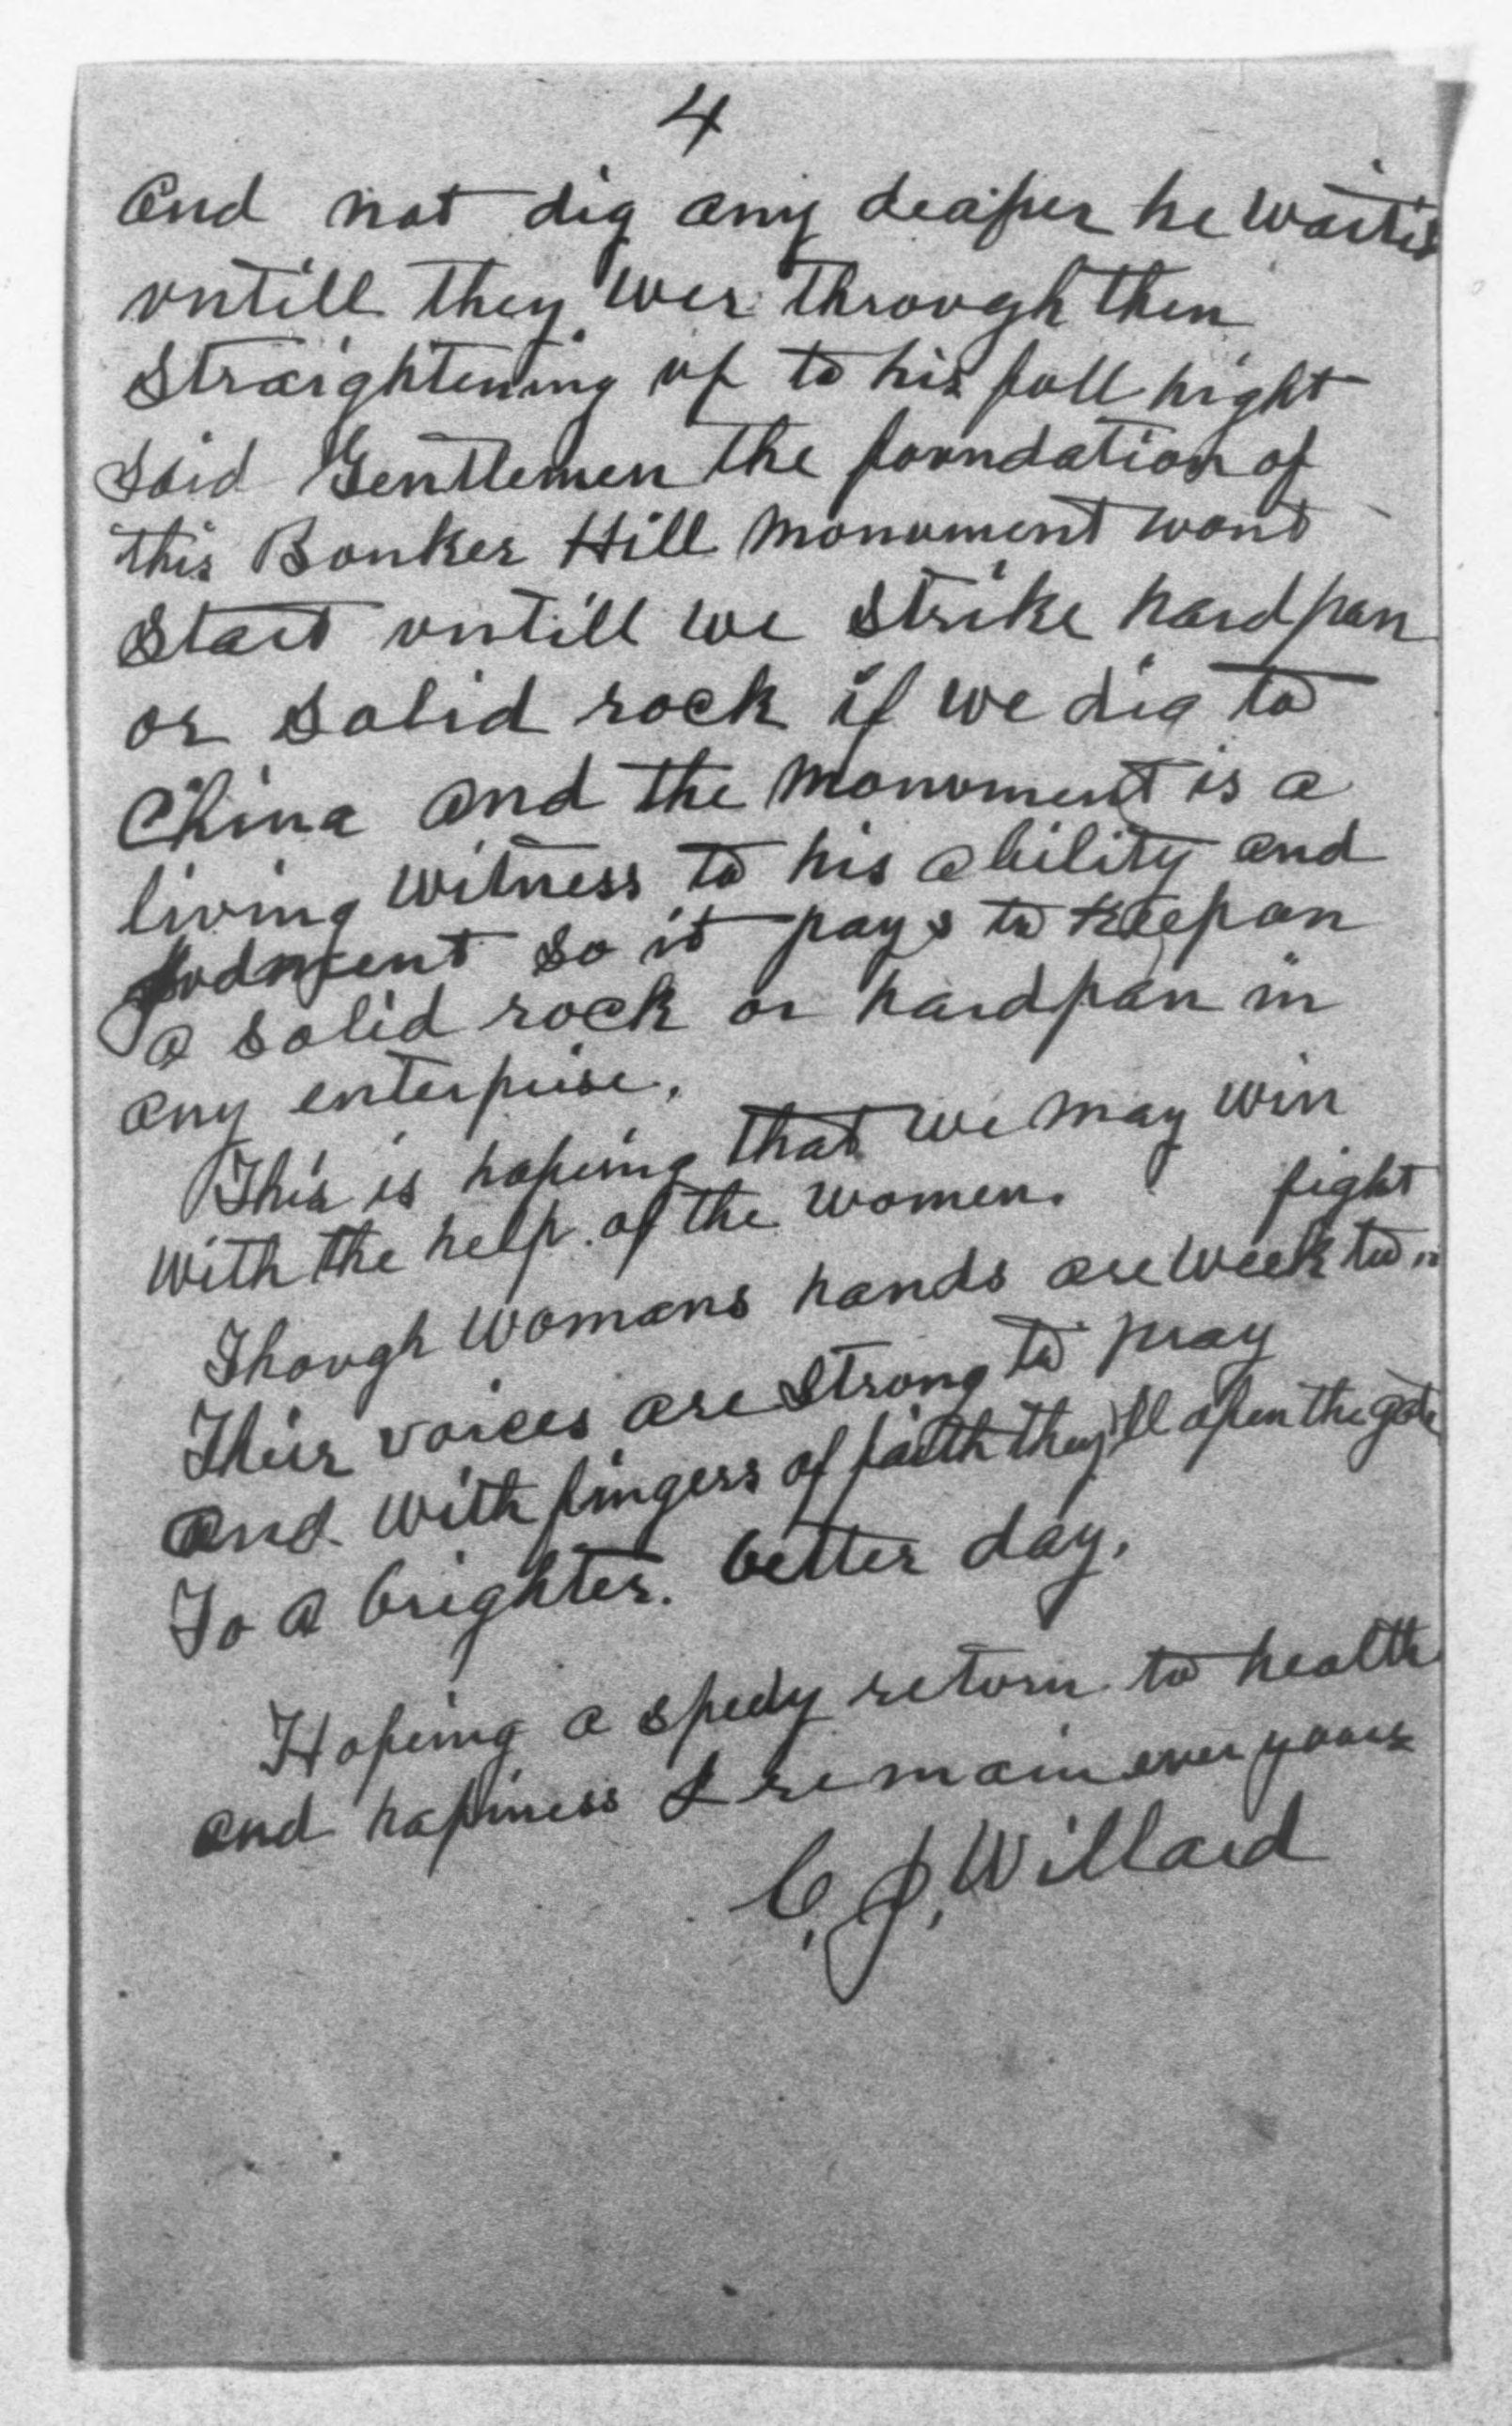 4
and not dig any deaper he waited
untill they wer through then
straightening up to his full hight
said Gentlemen the foundation of
this Bunker Hill Monument wont
start untill we strike hardpan
or solid rock if we dig to
China and the Monument is a
living witness to his ability and
Judment so it pays to keep on
a solid rock or hardpan in
any enterprise.
This is hoping that we may win
with the help of the women.
fight
Though womans hands are week to
Their voices are strong to pray
and with fingers of faith they'll open the gate
To a brighter. better day.
Hoping a spedy return to health
and hapiness I remain ever yours
C. J. Willard